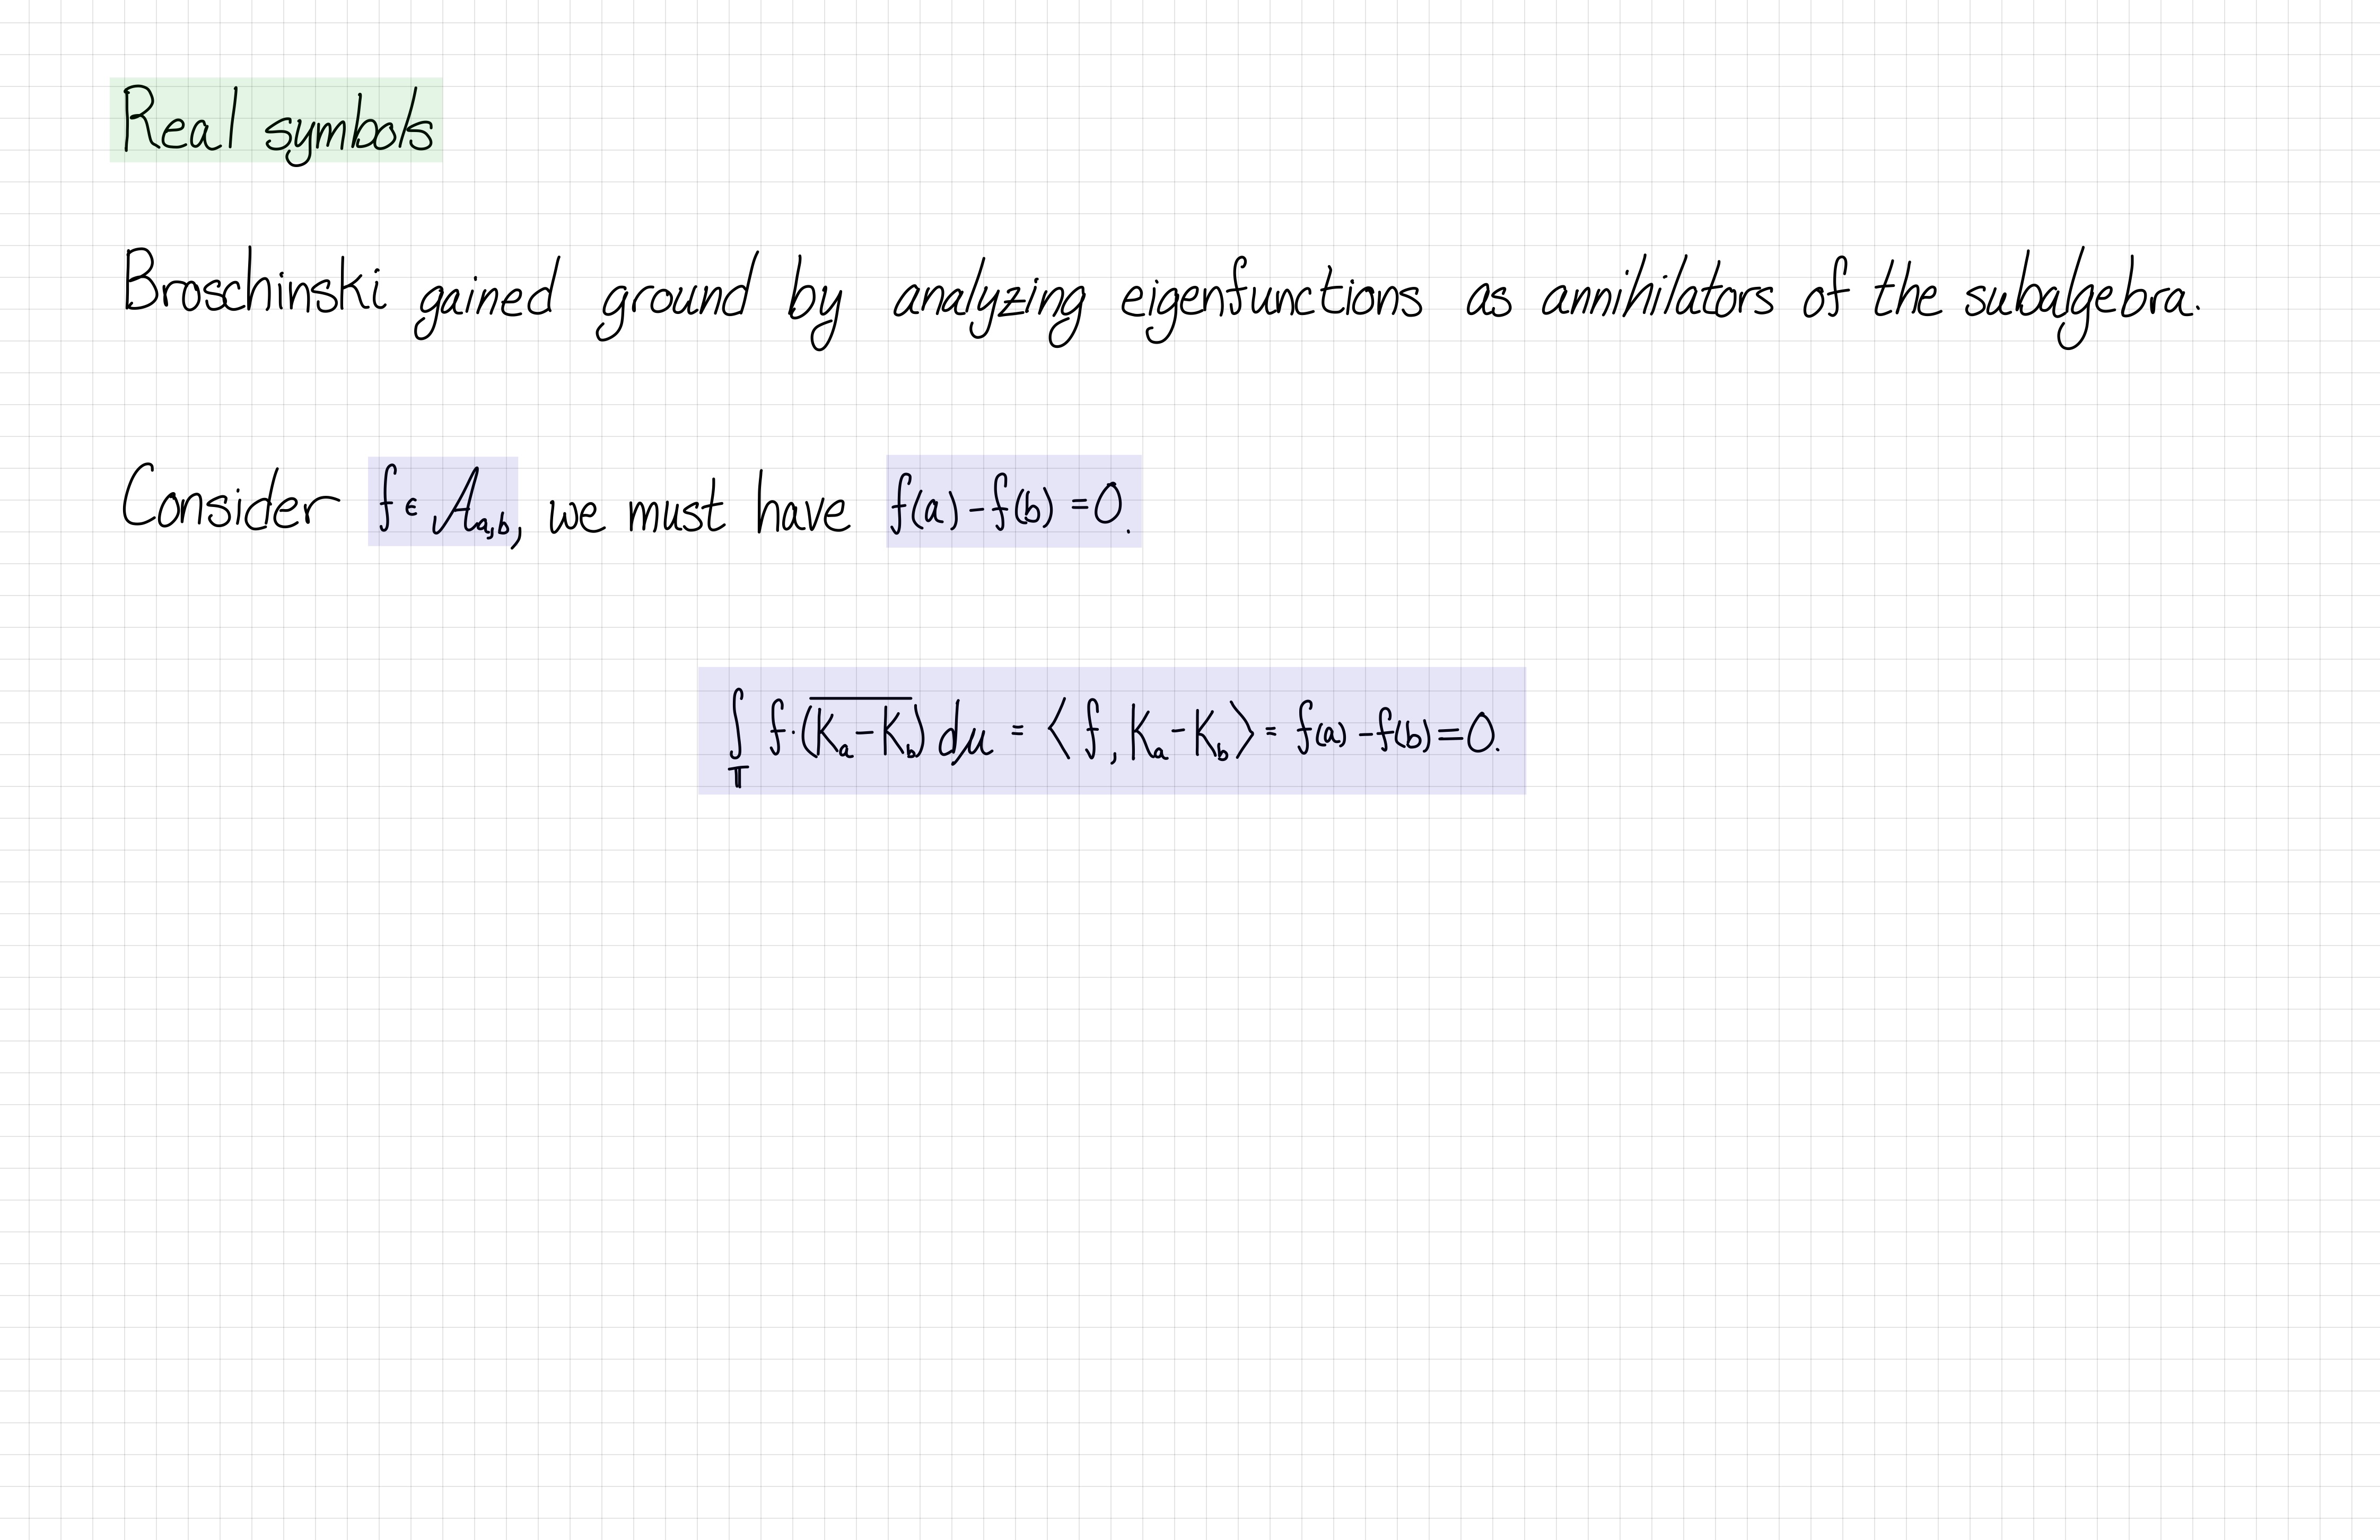 Real symbols
Broschinski gained ground by analyzing eigenfunctions as annihilators of the subalgebra.
Consider f ∈ 𝒜_{a,b}, we must have f(a) - f(b) = 0.
∫_𝕋 f·(\overline{K_a - K_b}) dμ = ⟨f, K_a - K_b⟩ = f(a) - f(b) = 0.